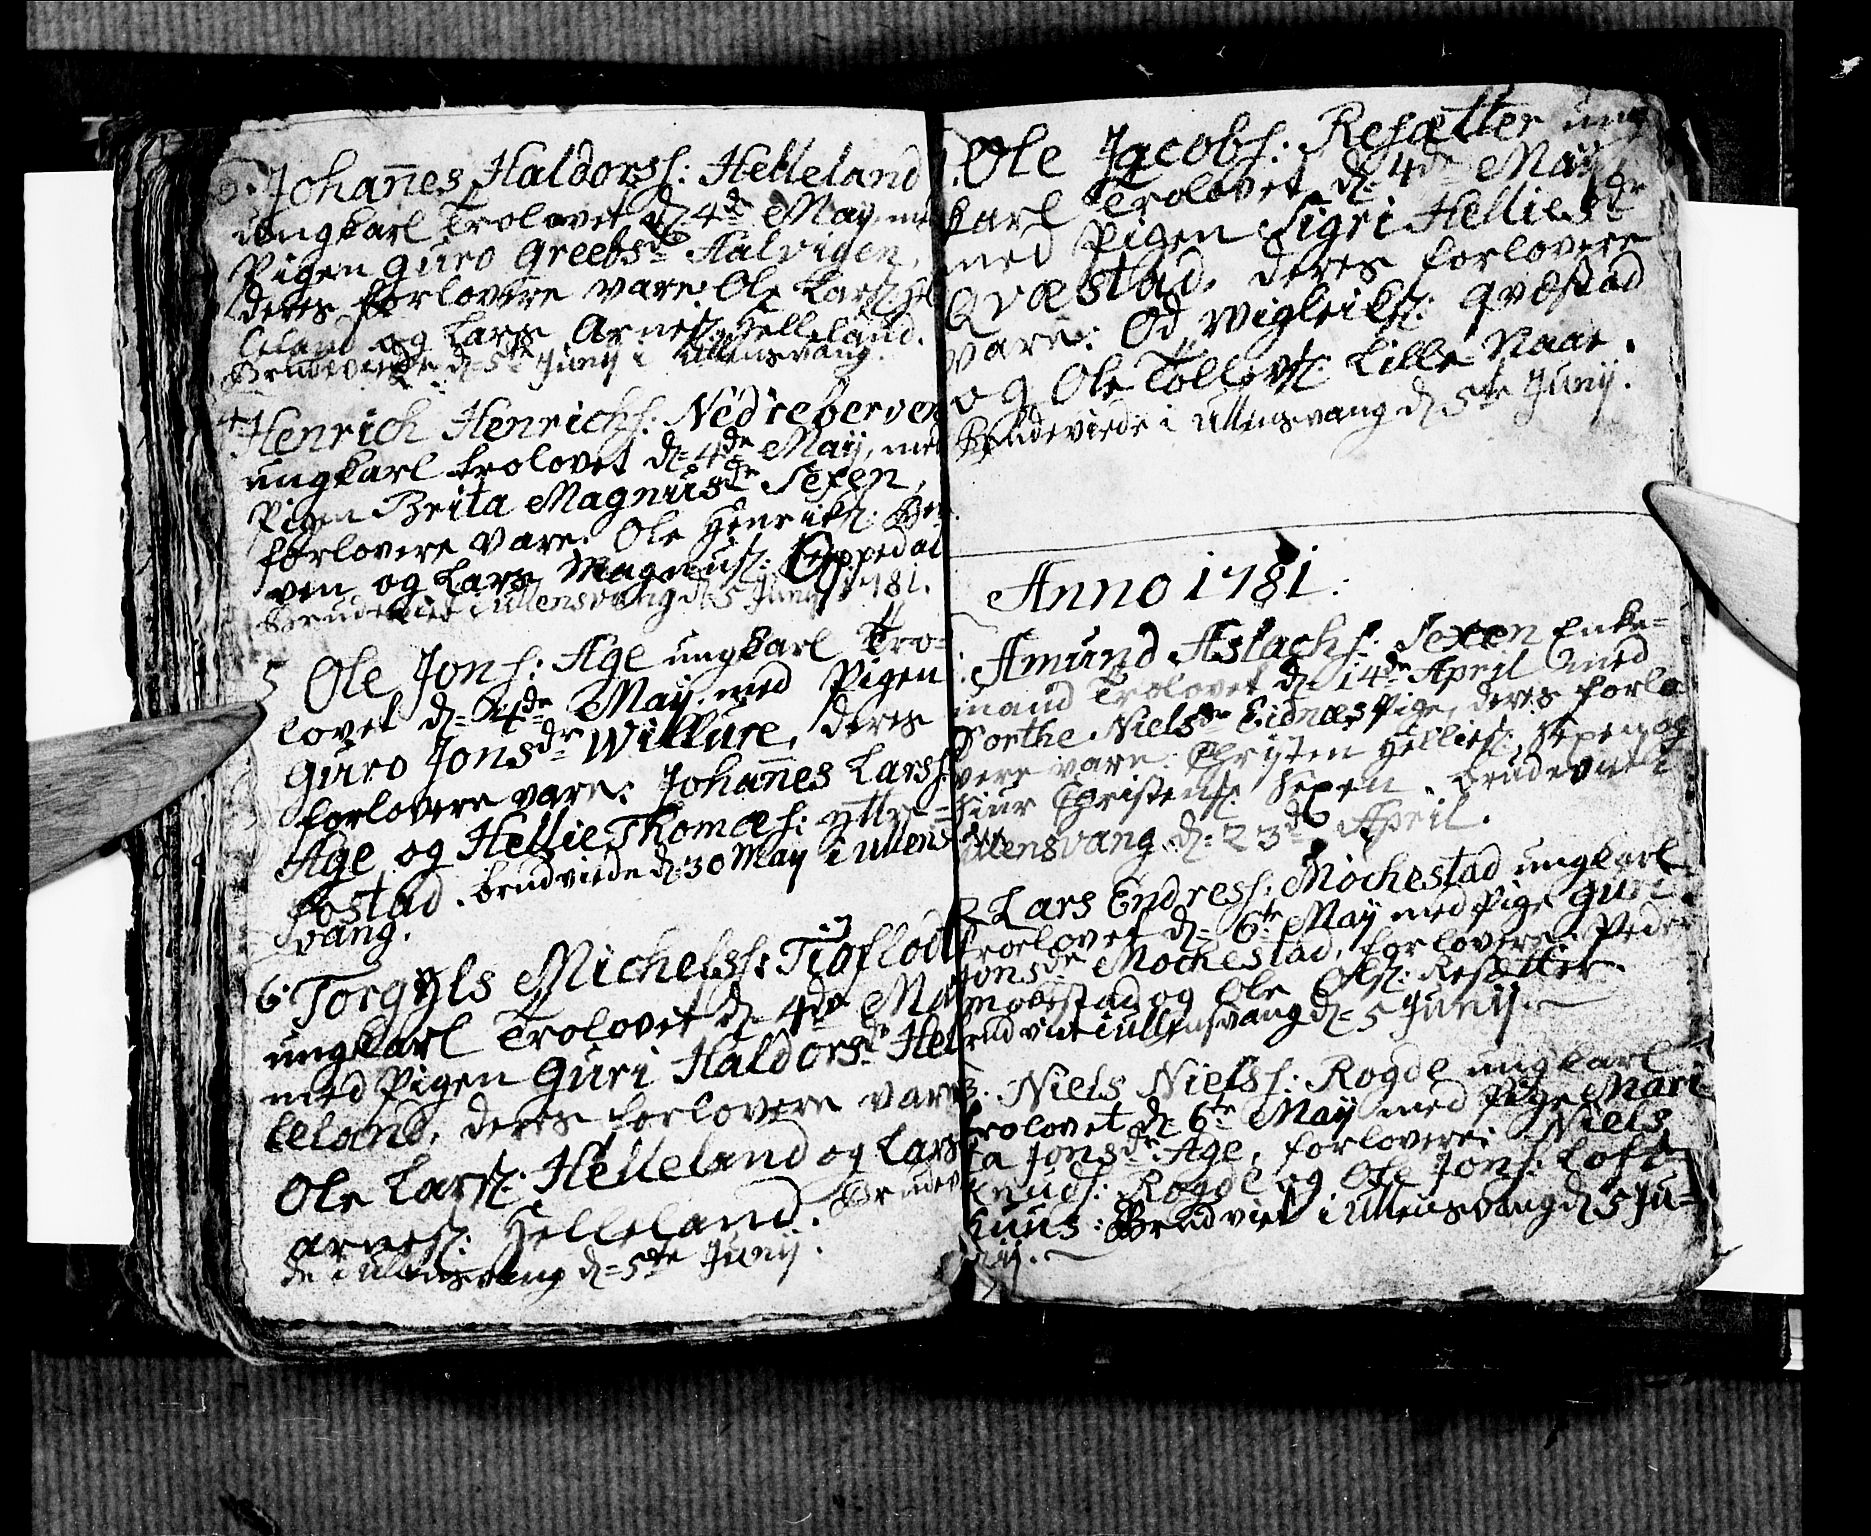 3. Johañes Haldorss: Helleland
ungkarl Trolovet d= 4de May, me
Pigen Guro Greebsdr Halvigen,
deres forlovere vare: Ole Larss: Hel
leland og Lars Arness: Helleland.
Brudeviede d= 5te Junij i Ullensvang.
4. Henrich Henrichs: Nedrebørven
ungkarl trolovet d= 4de May, med
Pigen Brita Magnusdr Sexen,
forlovere vare: Ole Henriks: Bør
ven og Lars Magnus: Oppedal
Brudeviet i Ullensvang d. 5 Junij 1781.
5 Ole Jons: Age ungkarl Tro-
lovet d= 4de May med Pigen
Guro Jonsdr Willure, deres
forlovere vare: Johañes Larss:
Age og Hellie Thomæs: yttre=
Kostad. brudviede d= 30 May i Ullens
vang.
6. Torgyls Michelss: Tioflodt
ungkarl Trolovet d= 4de Ma
med Pigen Guri Haldorsdr Hel
leland, deres forlovere vare
Ole Larss: Helleland og Lars
Arness: Helleland. Brudevi
de i Ullensvang d= 5te Junij.
Ole Jacobs: Resætter ung
karl Trolovet d= 4de May,
med Pigen Sigri Helliesdr
Qvæstad, deres forlovere
vare: Od Wigleiks: Qvæstad
og Ole Tollevs: Lille Naae.
Brudeviede i Ullensvang d 5te Junij.
Anno 1781.
Amund Aslachs: Sexen Enke=
mand Trolovet d= 14de April med
Dorthe Nielsdr Eidnes Pige, deres forlo
vere vare: Christen Hellies: Sexen og
Siur Christens: Sexen. brudeviet i
Ullensvang d= 23de April.
2 Lars Endress: Mochestad ungkarl
troelovet d= 6te May med Pige Guri
Jonsdr Mochestad, forlovere: Peder
Mokestad og Ole Ols: Resætter.
brudviet i Ullensvang d= 5 Junij.
3. Niels Nielss: Rogde ungkarl
trolovet d= 6te May med Pige Mari
ta Jonsdr Age, forlovere: Niels
Knuds: Rogde og Ole Jons: Loft
huus: Brudviet i Ullensvang d 5 Ju=
nij.